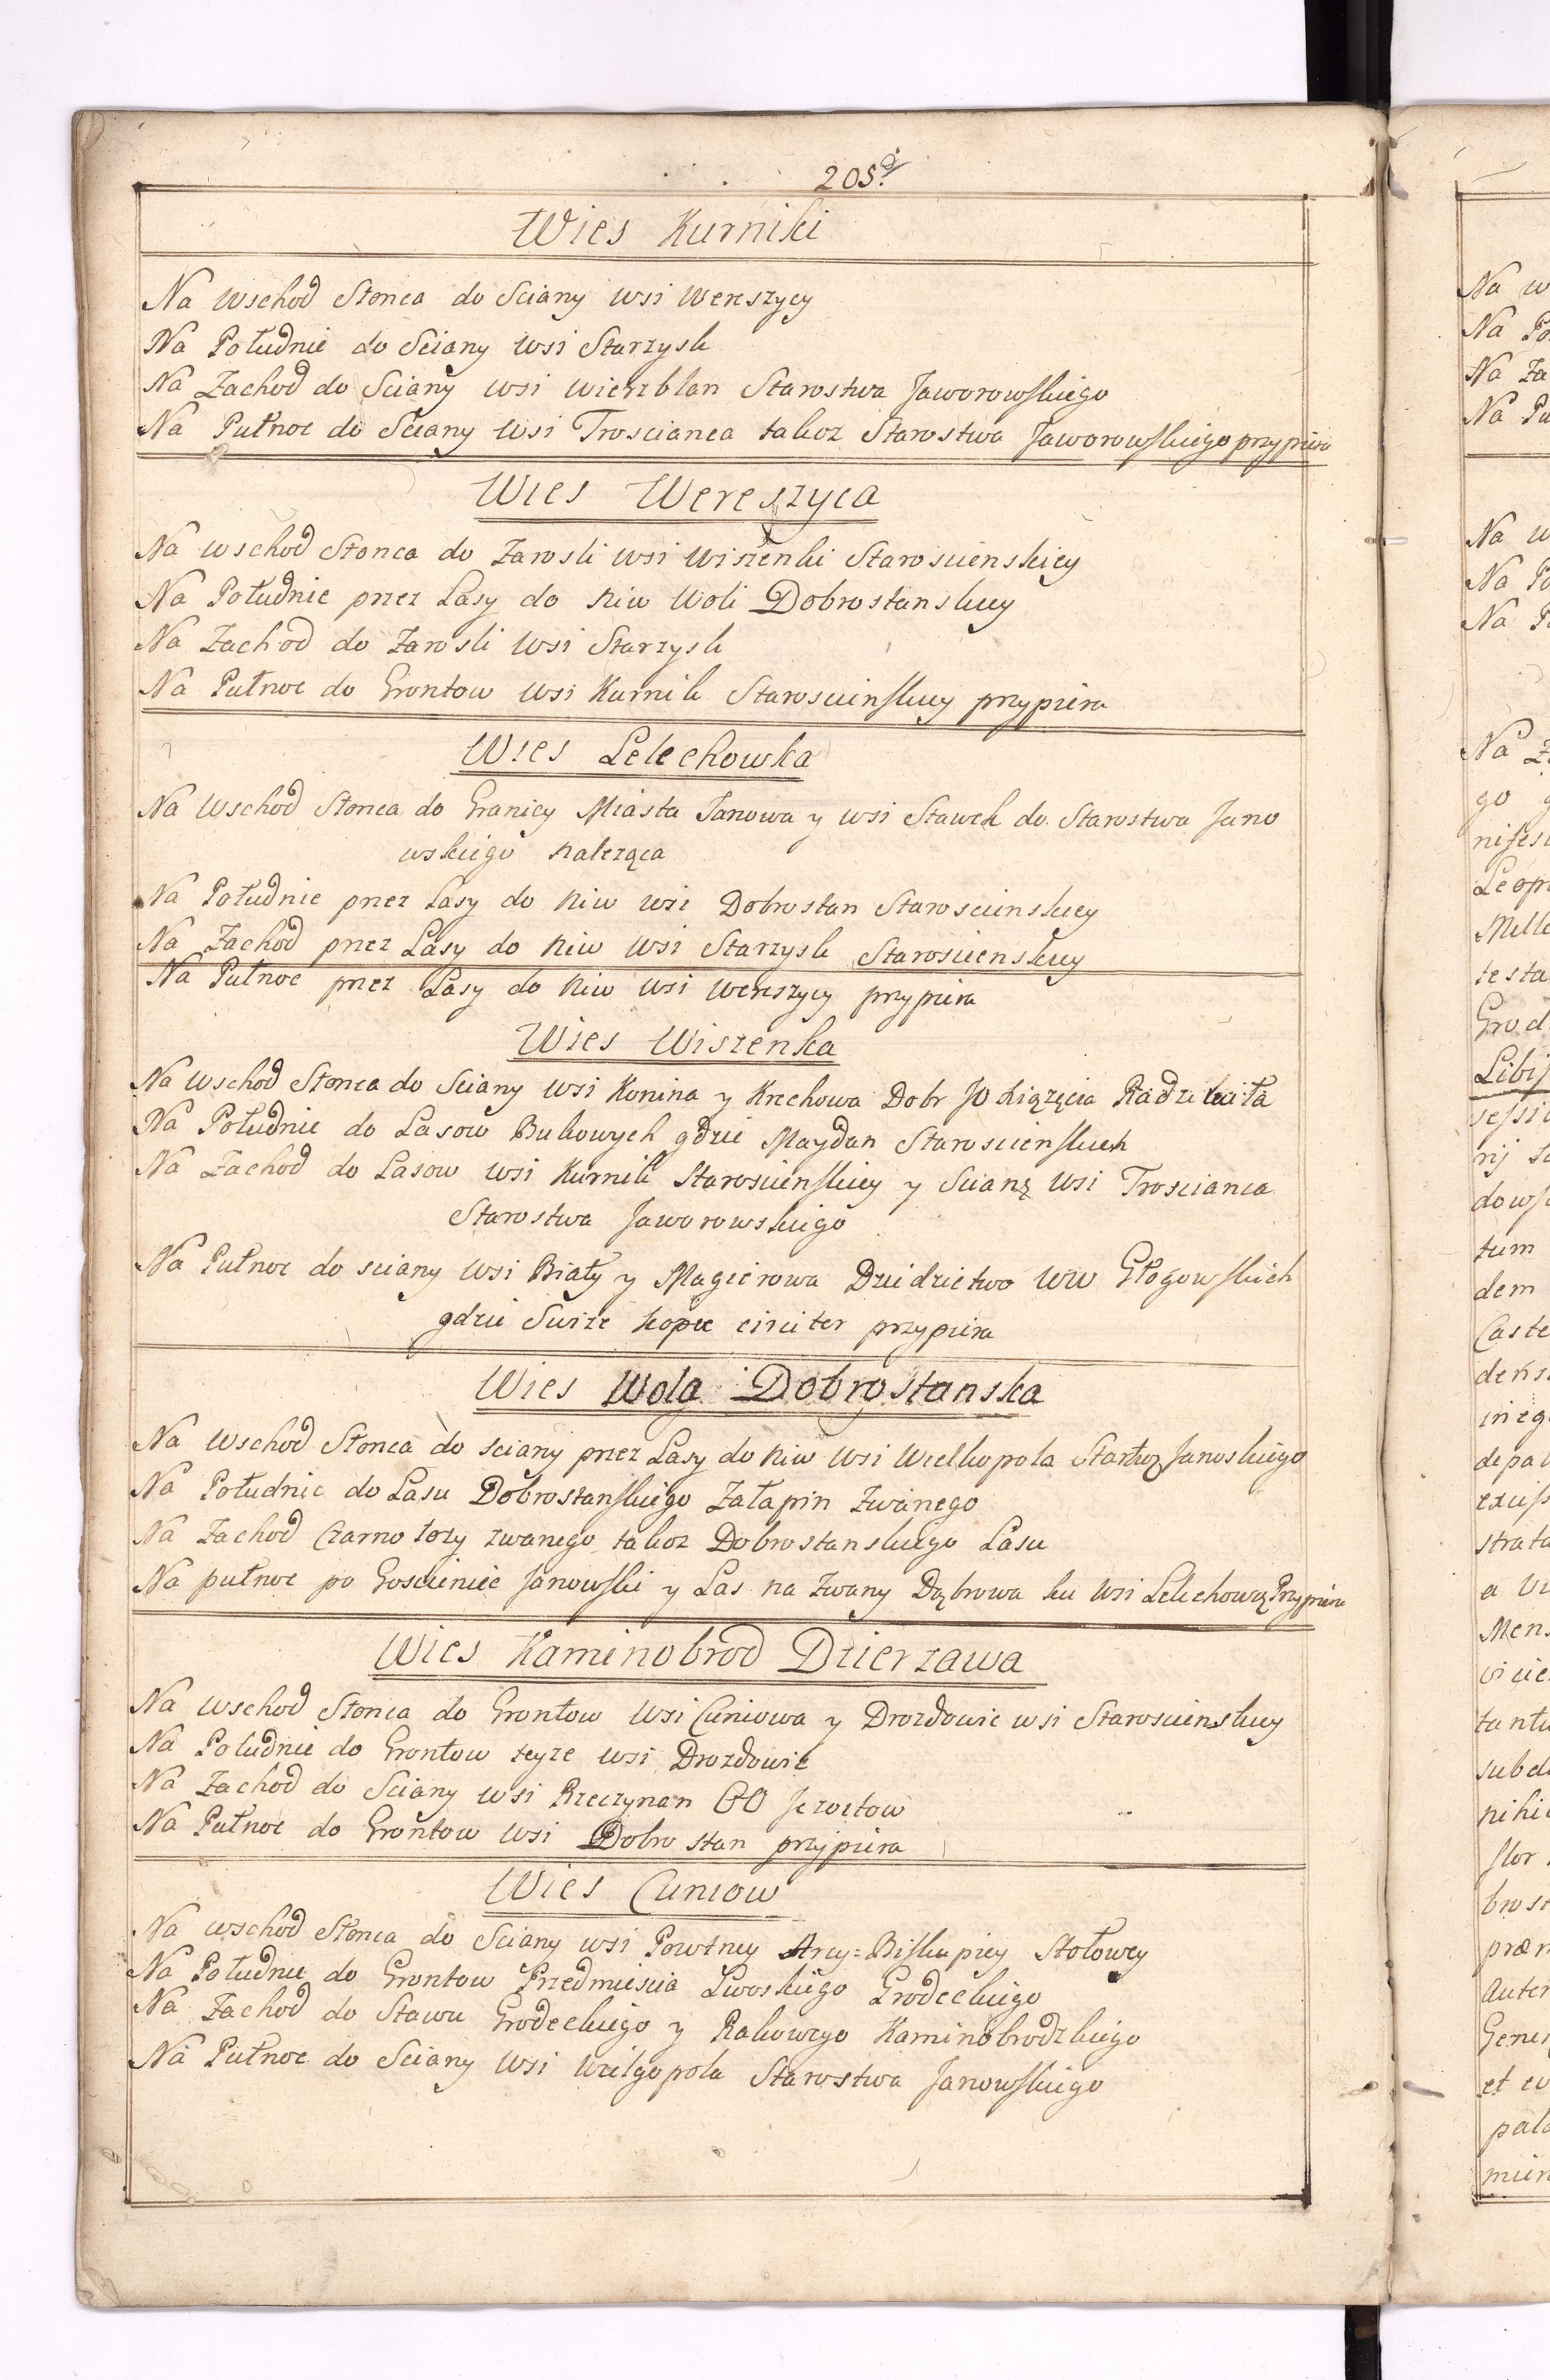 205.
Wies Kurniki
Na Wschod Słonca do Sciany wsi Wereszycy
Na Południe do Sciany wsi Starzysk
Na Zachod do Sciany wsi Wierzblan Starostwa Jaworowskiego
Na Pułnoc do Sciany wsi Troscianca takoz Starostwa Jaworowskiego przypiera
Wies Wereszyca
Na wschod Słonca do Zarosli wsi Wiszenki Staroscienskiey
Na Południe przez Lasy do Niw Woli Dobrostanskiey
Na Zachod do Zarosli wsi Starzysk
Na Pułnoc do Grontow wsi Kurnik Staroscinskiey przypiera
Wies Lelechowka
Na Wschod Słonca do Granicy Miasta Janowa y wsi Stawek do Starostwa Jano
wskiego naleząca
Na Południe przez Lasy do Niw wsi Dobrostan Staroscinskiey
Na Zachod przez Lasy do Niw wsi Starzysk Staroscienskiey
Na Pułnoc przez Lasy do Niw wsi Wereszycy przypiera
Wies Wiszenka
Na Wschod Słonca do Sciany wsi Konina y Krechowa Dobr JO Xiązęcia Radziwiła
Na Południe do Lasow Bukowych gdzie Maydan Staroscienskich
Na Zachod do Lasow wsi Kurnik Staroscienskiey y Scianę wsi Troscianca
Starostwa Jaworowskiego
Na Pułnoc do sciany wsi Biały y Magierowa Dziedzictwo WW Głogowskich
gdzie Swize kopce circiter przypiera
Wies Wola Dobrostanska
Na Wschod Słonca do sciany przez Lasy do Niw wsi Wielkopola Janoskiego
Na Południe do Lasu Dobrostanskiego Załapin Zwanego
Na Zachod Czarno łozy zwanego takoz Dobrostanskiego Lasu
Na pułnoc po Gosciniec Janowski y Las na Zwany Dąbrowa ku wsi Przypiera
Wies Kaminobrod Dzierzawa
Na Wschod Słonca do Grontow wsi Cuniowa y Drozdowic wsi Staroscienskiey
Na Poludnie do Grontow teyze wsi Drozdowic
Na Zachod do Sciany wsi Rzeczynan OO Jezoitow
Na Pułnoc do Grontow wsi Dobrostan przypiera
Wies Cuniow
Na wschod Słonca do Sciany wsi Powtney Arcy=Biskupiey Stołowey
Na Południe do Grontow Przedmiescia Lwoskiego Grodeckiego
Na Zachod do Stawu Grodeckiego y Rakowego Kaminobrodzkiego
Na Pułnoc do Sciany wsi Wielgopola Starostwa Janowskiego